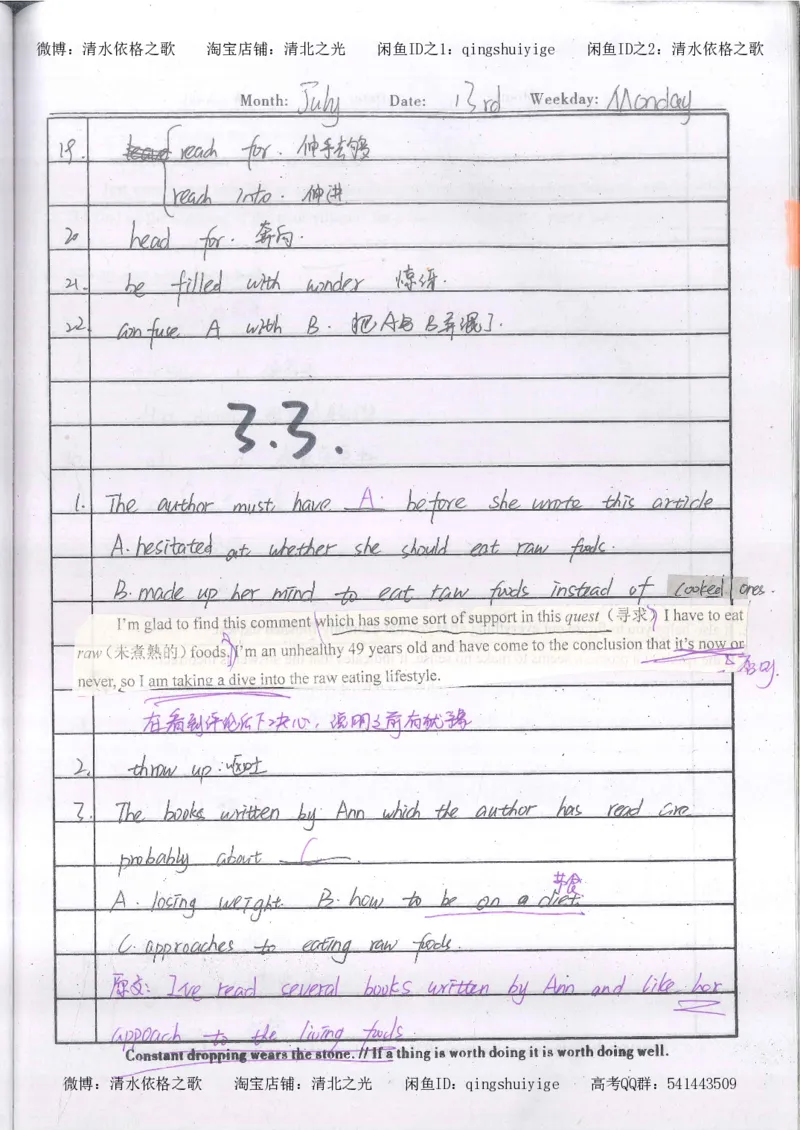 微博：清水依格之歌 淘宝店铺：清北之光 闲鱼ID之1：qingshuiyige 闲鱼ID之2：清水依格之歌
Month: July Date: 13rd Weekday: Monday
19. reach for. 伸手去够
reach into. 伸进
20 head for. 奔向.
21. be filled with wonder 惊讶.
22. confuse A with B. 把A与B弄混了.
3.3.
1. The author must have A. before she wrote this article
A. hesitated at whether she should eat raw foods.
B. made up her mind to eat raw foods instead of cooked ones.
I'm glad to find this comment which has some sort of support in this quest（寻求）I have to eat
raw（未煮熟的）foods. I'm an unhealthy 49 years old and have come to the conclusion that it's now or
never, so I am taking a dive into the raw eating lifestyle.
在看到评论后下决心，说明之前有犹豫
2. throw up：呕吐
3. The books written by Ann which the author has read are
probably about C.
A. losing weight. B. how to be on a diet.
C. approaches to eating raw foods.
原文：I've read several books written by Ann and like her
appoach to the living foods.
Constant dropping wears the stone. // If a thing is worth doing it is worth doing well.
微博：清水依格之歌 淘宝店铺：清北之光 闲鱼ID：qingshuiyige 高考QQ群：541443509